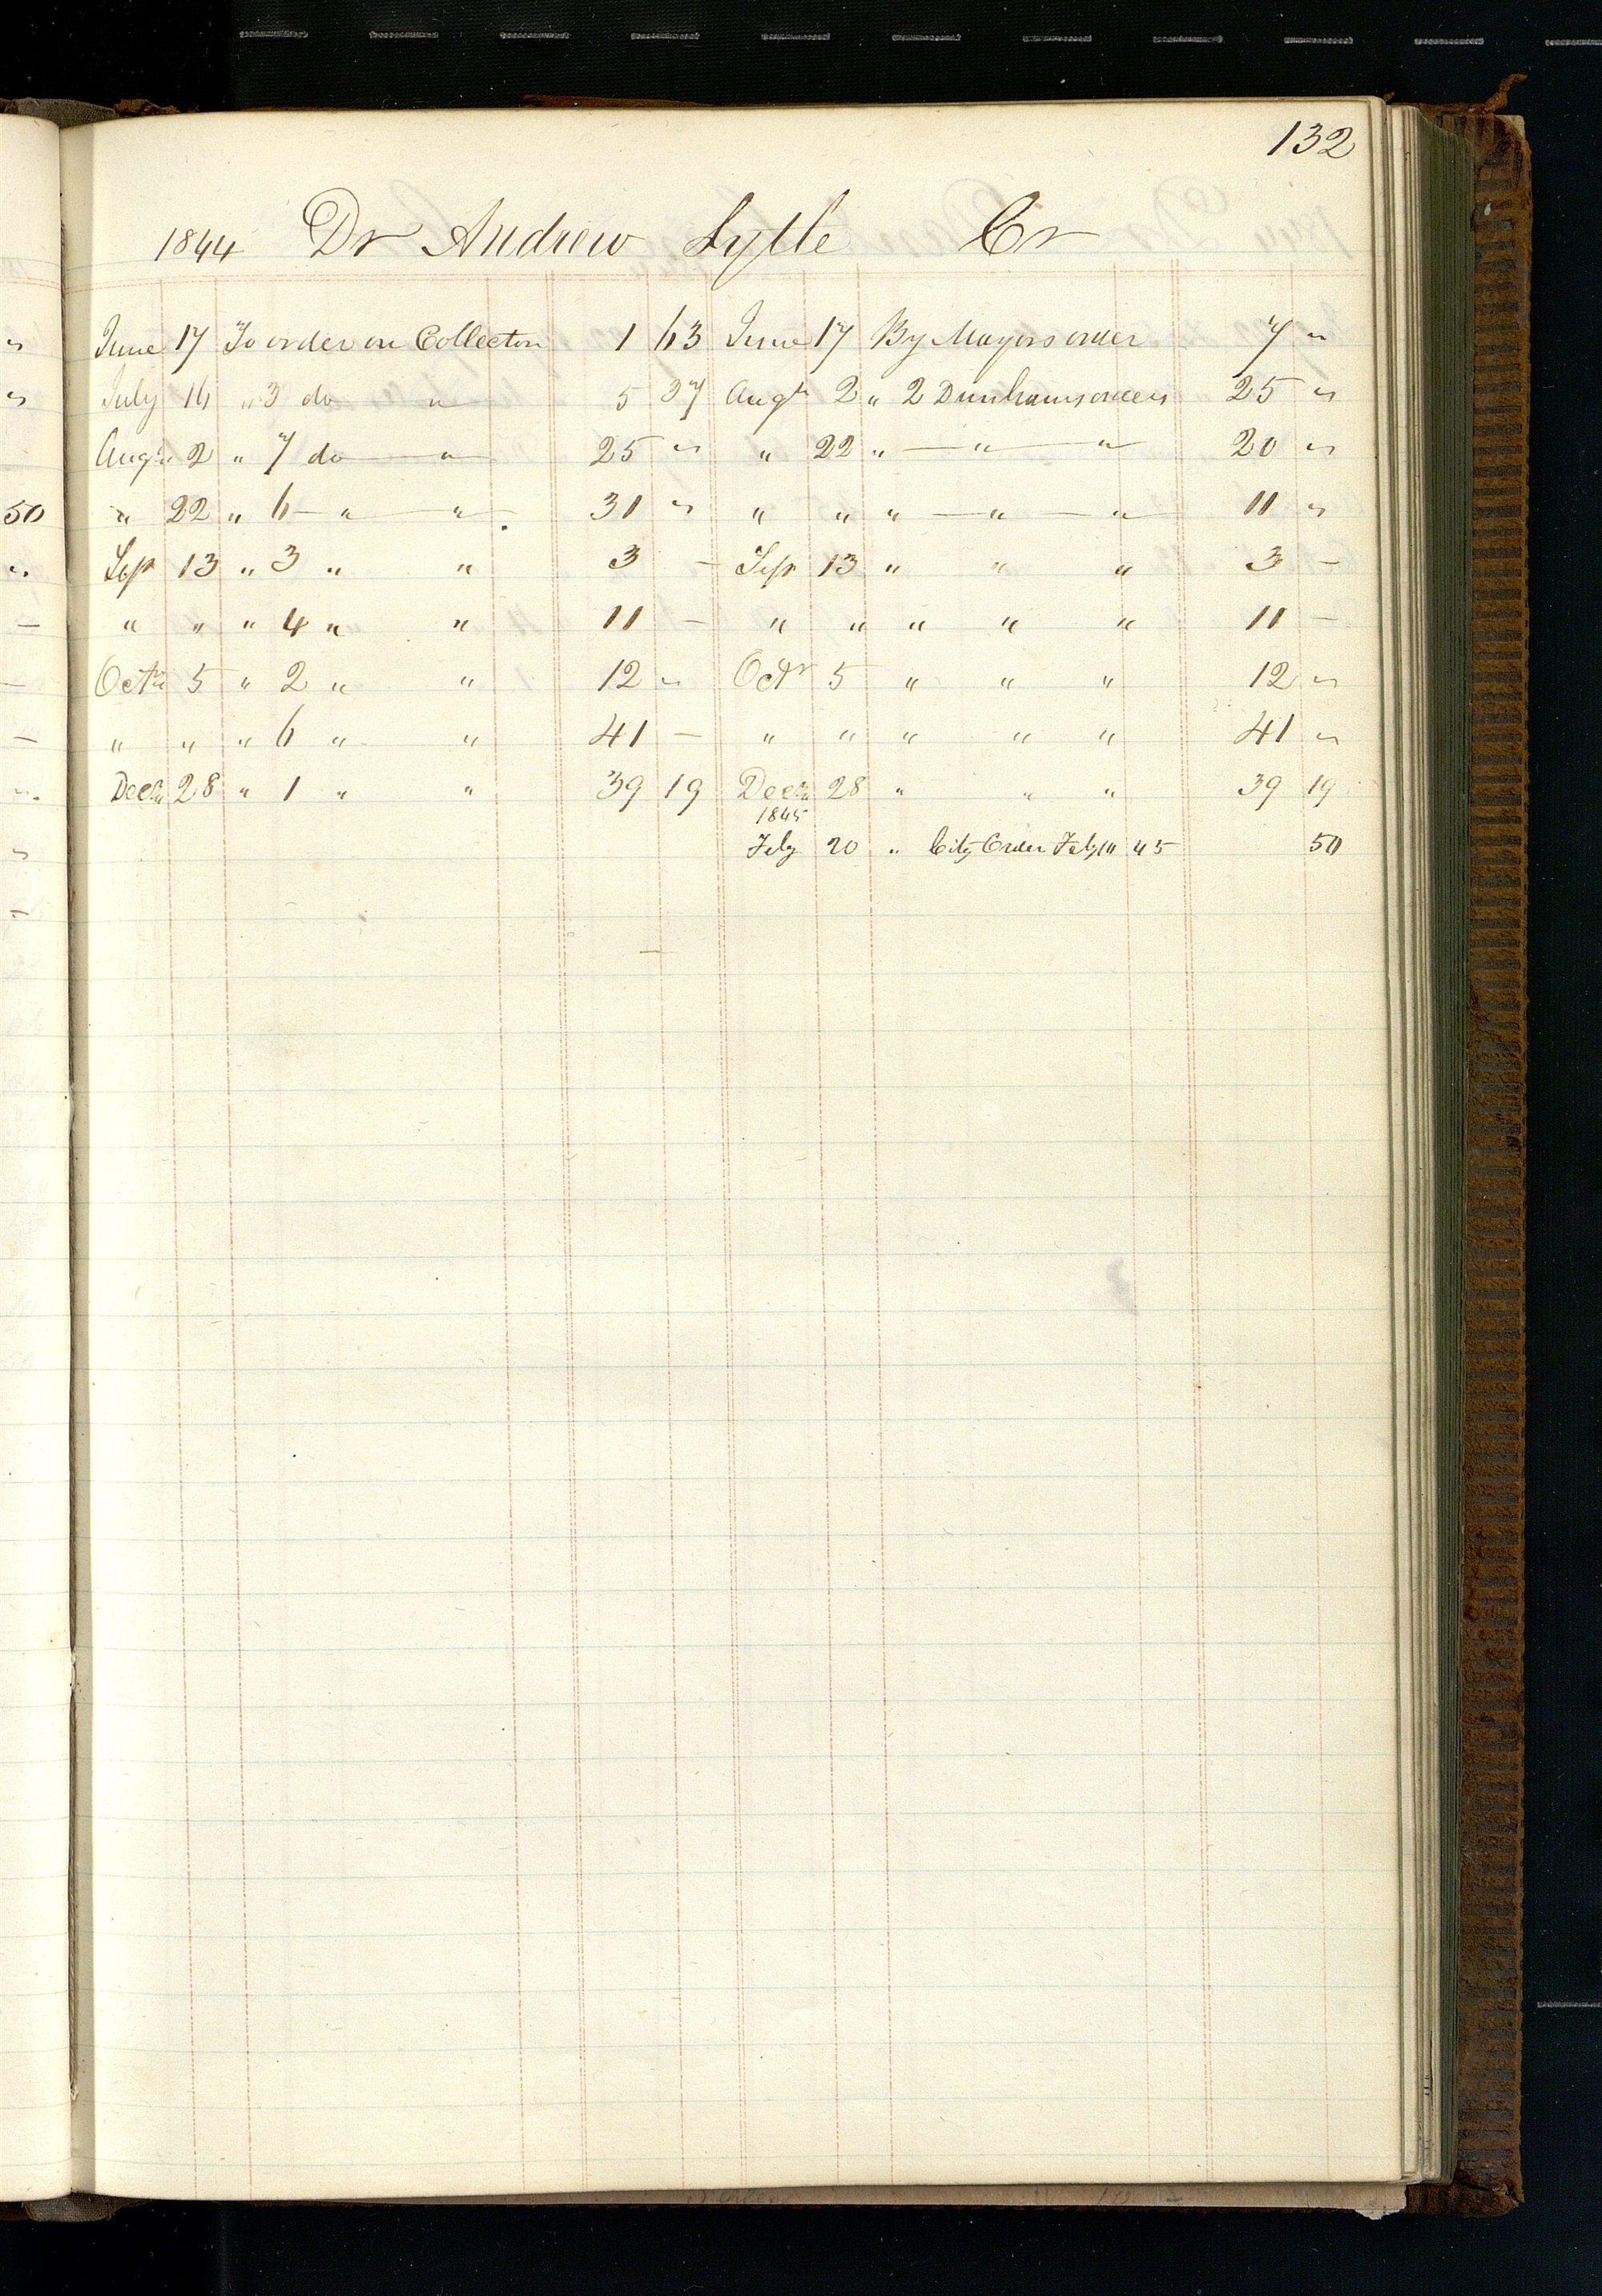 132
1844 Dr Andrew Lytle Cr
June 17 To order on Collector 1 63 June 17 By Mayors order 7 "
July 16 " 3 do " 5 37 Augt 2 " 2 Dunhams orders 25 "
Augt 2 " 7 do " 25 " " 22 " " " 20 "
50 " 22 " 6 " " 31 " " " " " " 11 "
Sep 13 " 3 " " 3 — Sep 13 " " " 3 —
" " " 4 " " 11 — " " " " " 11 —
Octr 5 " 2 " " 12 " Octr 5 " " " 12 "
" " " 6 " " 41 — " " " " " 41 "
Decr 28 " 1 " " 39 19 Decr 28 " " " 39 19
1845
Feby 20 " City Order Feby 45 50